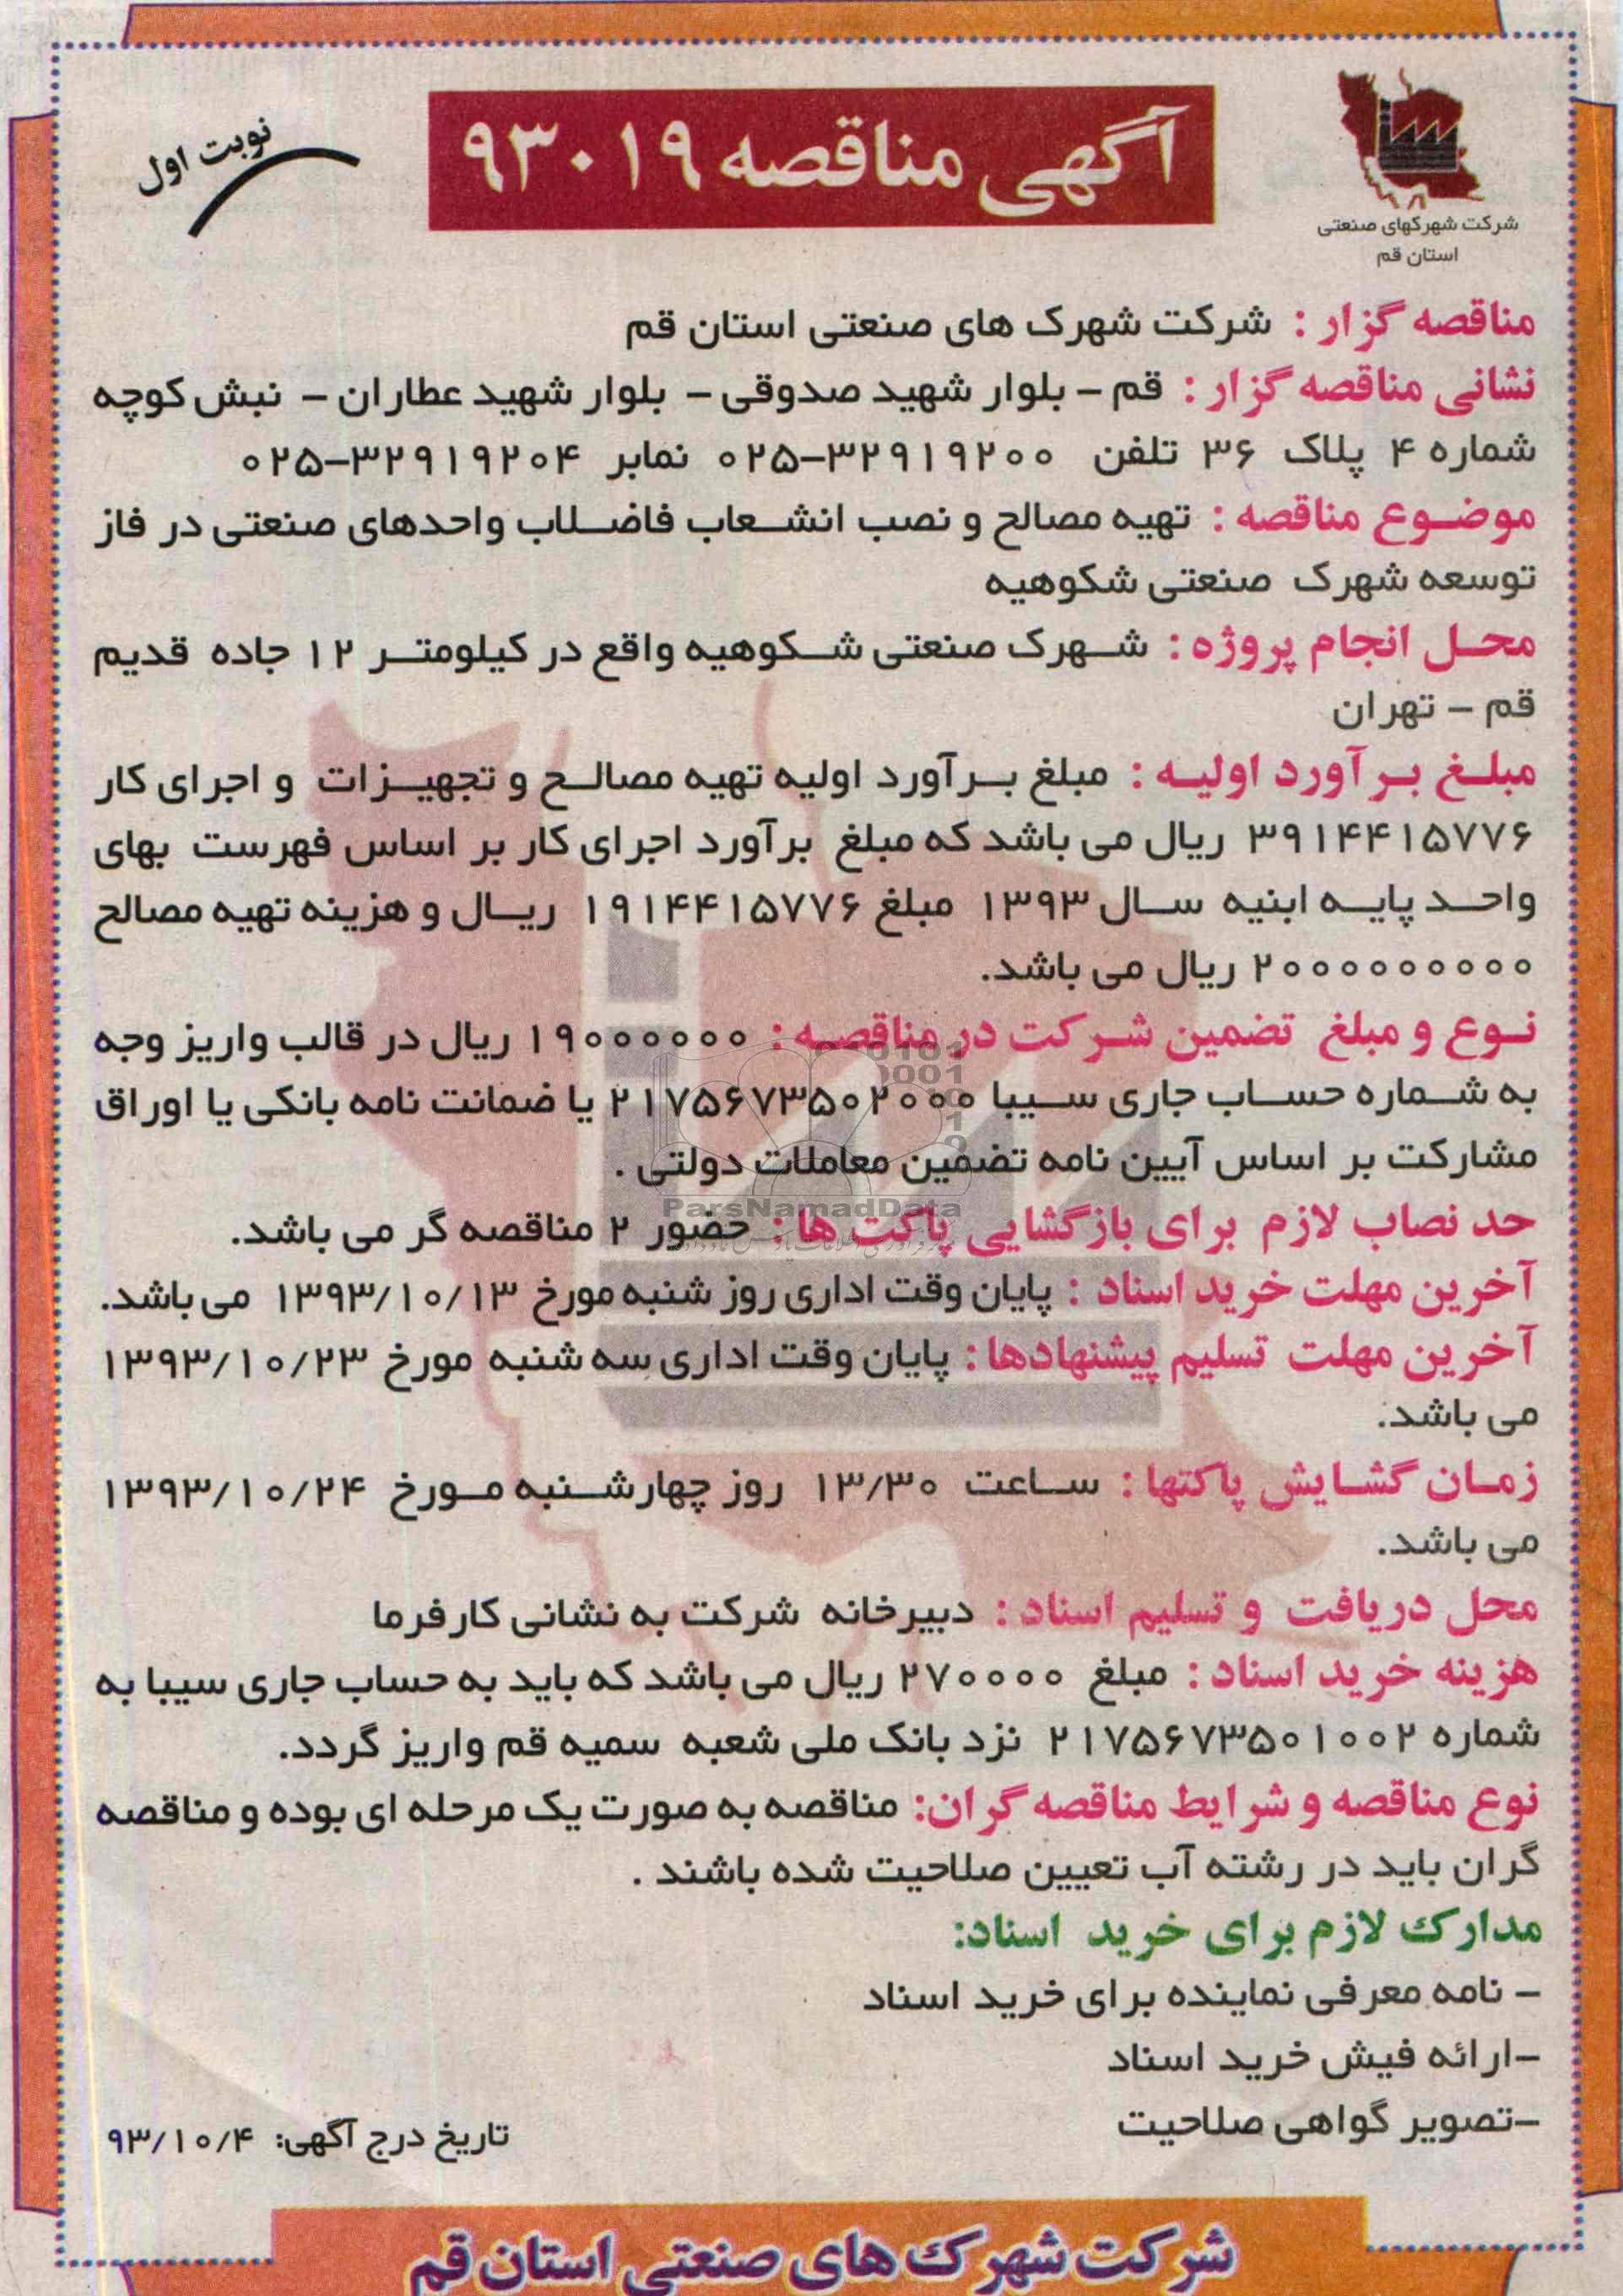 شرکت شهرکهای صنعتی
استان قم
آگهی مناقصه ۹۳۰۱۹
نوبت اول
مناقصه گزار : شرکت شهرک های صنعتی استان قم
نشانی مناقصه گزار : قم – بلوار شهید صدوقی – بلوار شهید عطاران – نبش کوچه
شماره ۴ پلاک ۳۶ تلفن ۳۲۹۱۹۲۰۰-۰۲۵ نمابر ۳۲۹۱۹۲۰۴-۰۲۵
موضوع مناقصه : تهیه مصالح و نصب انشعاب فاضلاب واحدهای صنعتی در فاز
توسعه شهرک صنعتی شکوهیه
محل انجام پروژه : شهرک صنعتی شکوهیه واقع در کیلومتر ۱۲ جاده قدیم
قم – تهران
مبلغ برآورد اولیه : مبلغ برآورد اولیه تهیه مصالح و تجهیزات و اجرای کار
۳۹۱۴۴۱۵۷۷۶ ریال می باشد که مبلغ برآورد اجرای کار بر اساس فهرست بهای
واحد پایه ابنیه سال ۱۳۹۳ مبلغ ۱۹۱۴۴۱۵۷۷۶ ریال و هزینه تهیه مصالح
۲۰۰۰۰۰۰۰۰۰ ریال می باشد.
نوع و مبلغ تضمین شرکت در مناقصه : ۱۹۰۰۰۰۰۰۰ ریال در قالب واریز وجه
به شماره حساب جاری سیبا ۲۱۷۵۶۷۳۵۰۲۰۰۰ یا ضمانت نامه بانکی یا اوراق
مشارکت بر اساس آیین نامه تضمین معاملات دولتی .
ParsNamadData
حد نصاب لازم برای بازگشایی پاکت ها : حضور ۲ مناقصه گر می باشد.
آخرین مهلت خرید اسناد : پایان وقت اداری روز شنبه مورخ ۱۳۹۳/۱۰/۱۳ می باشد.
آخرین مهلت تسلیم پیشنهادها : پایان وقت اداری سه شنبه مورخ ۱۳۹۳/۱۰/۲۳
می باشد.
زمان گشایش پاکتها : ساعت ۱۳/۳۰ روز چهارشنبه مورخ ۱۳۹۳/۱۰/۲۴
می باشد.
محل دریافت و تسلیم اسناد : دبیرخانه شرکت به نشانی کارفرما
هزینه خرید اسناد : مبلغ ۲۷۰۰۰۰ ریال می باشد که باید به حساب جاری سیبا به
شماره ۲۱۷۵۶۷۳۵۰۱۰۰۲ نزد بانک ملی شعبه سمیه قم واریز گردد.
نوع مناقصه و شرایط مناقصه گران: مناقصه به صورت یک مرحله ای بوده و مناقصه
گران باید در رشته آب تعیین صلاحیت شده باشند .
مدارک لازم برای خرید اسناد:
– نامه معرفی نماینده برای خرید اسناد
–ارائه فیش خرید اسناد
–تصویر گواهی صلاحیت
تاریخ درج آگهی: ۹۳/۱۰/۴
شرکت شهرک های صنعتی استان قم